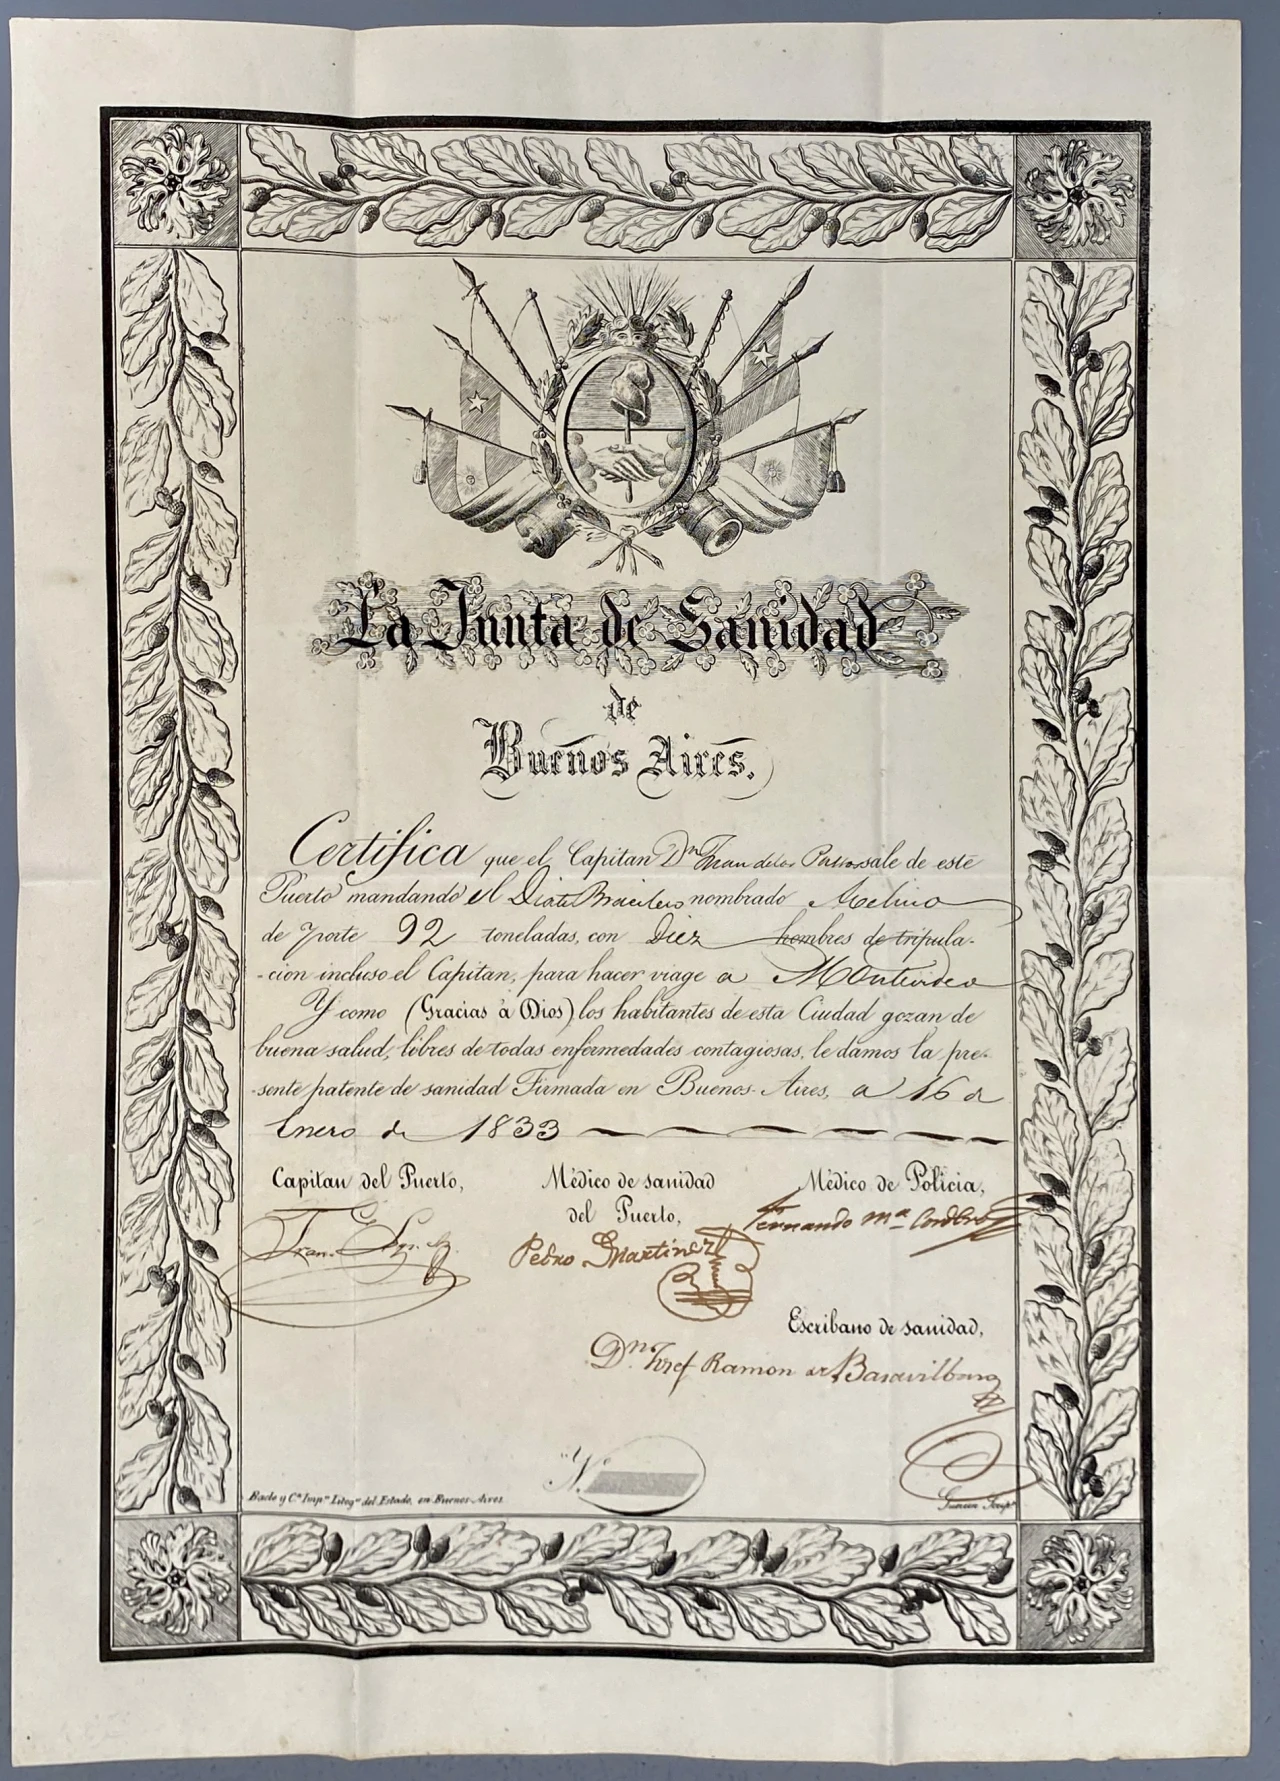 La Junta de Sanidad
de
Buenos Aires.
Certifica que el Capitan Dn Juan de los sale de este
Puerto mandando el nombrado
de porte 92 toneladas, con Diez hombres de tripula-
-cion incluso el Capitan, para hacer viage a Montevideo
Y como (Gracias à Dios) los habitantes de esta Ciudad gozan de
buena salud, libres de todas enfermedades contagiosas, le damos la pre-
-sente patente de sanidad Firmada en Buenos-Aires, a 16 de
Enero de 1833
Capitan del Puerto,
Médico de sanidad
del Puerto,
Médico de Policia,
Fran.
Pedro Martinez
Fernando Ma Cordero
Escribano de sanidad,
Dn Josef Ramon de Basavilbaso
N.
Bacle y Ca. Impn Litogn del Estado, en Buenos-Aires